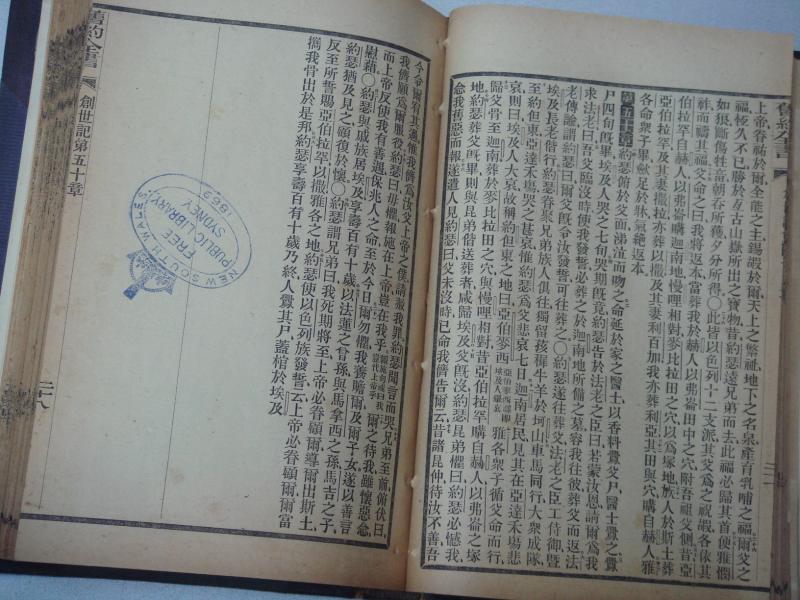 上帝眷祐於爾全能之主錫嘏於爾天上之繁祉地下之名泉產育乳哺之福爾父之
福恆久不已勝於亙古山嶽所出之寶物昔約瑟遜兄弟而去此福必歸其首便雅憫
如狼斷傷牲畜朝吞所獲夕分所得○此皆以色列十二支派其父爲之祝嘏各依其
祥而禱其福父命之曰我將返本當葬我於赫人以弗崙田中之穴附吾祖父側昔亞
伯拉罕自赫人以弗崙購迦南地幔哩相對麥比拉田之穴以爲塚地族人於斯土葬
亞伯拉罕及其妻撒拉亦葬以撒及其妻利百加我亦葬利亞其田與穴購自赫人雅
各命衆子畢歛足於牀氣絕返本
第五十章約瑟俯於父面涕泣而吻之命延於家之醫士以香料釁父尸醫士釁之釁
尸四旬而畢埃及人哭之七旬哭期旣竟約瑟告於法老之臣曰若蒙汝恩請爾爲我
求法老曰吾父臨沒時使我發誓必葬之於迦南地所備之墓容我往彼葬父而返法
老傳諭謂約瑟曰爾父旣令汝發誓可往葬之○約瑟遂往葬父法老之臣工侍御曁
埃及長老偕行約瑟眷聚兄弟族人俱往獨留孩稚牛羊於坷山車馬同行大衆成隊
至約但東亞達禾塲哭之甚哀惟約瑟爲父悲哀七日迦南居民見其在亞達禾塲悲
哀則曰埃及人大哀故稱約但東之地曰亞伯麥西亞伯麥西譯卽埃及人舉哀雅各衆子循父命而行
歸父骨至迦南葬於麥比拉田之穴與幔哩相對昔亞伯拉罕購自赫人以弗崙之塚
地約瑟葬父旣畢則與昆弟偕送葬者咸歸埃及父旣沒約瑟昆弟懼曰約瑟必憾我
念我舊惡而報遂遣人見約瑟曰父未沒時已命我儕告爾云昔諸昆仲待汝不善吾
今令爾宥其過惟我儕爲汝父上帝之僕請赦我罪約瑟聞言而哭兄弟至前伏曰
我儕願爲爾服役約瑟曰毋懼報施在上帝豈在我乎 爾之待我雖懷惡念
而上帝反使我有善遇保兆人之命至於今日爾勿懼我善贍爾及爾子女遂以善言
慰藉○約瑟與戚族居埃及享壽百有十歲以法蓮之曾孫與馬拿西之孫馬吉之子
約瑟猶及見之顧復於懷○約瑟謂兄弟曰我死期將至上帝必眷顧爾導爾出斯土
反至所誓賜亞伯拉罕以撒雅各之地約瑟使以色列族發誓云上帝必眷顧爾爾當
携我骨出於是邦約瑟享壽百有十歲乃終人釁其尸蓋棺於埃及
舊約全書
創世記第五十章
二十八
NEW SOUTH WALES.
FREE
PUBLIC LIBRARY
SYDNEY
1869